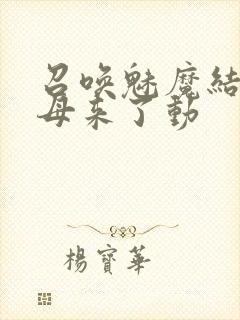 召喚魅魔結
母来了動
楊寶華